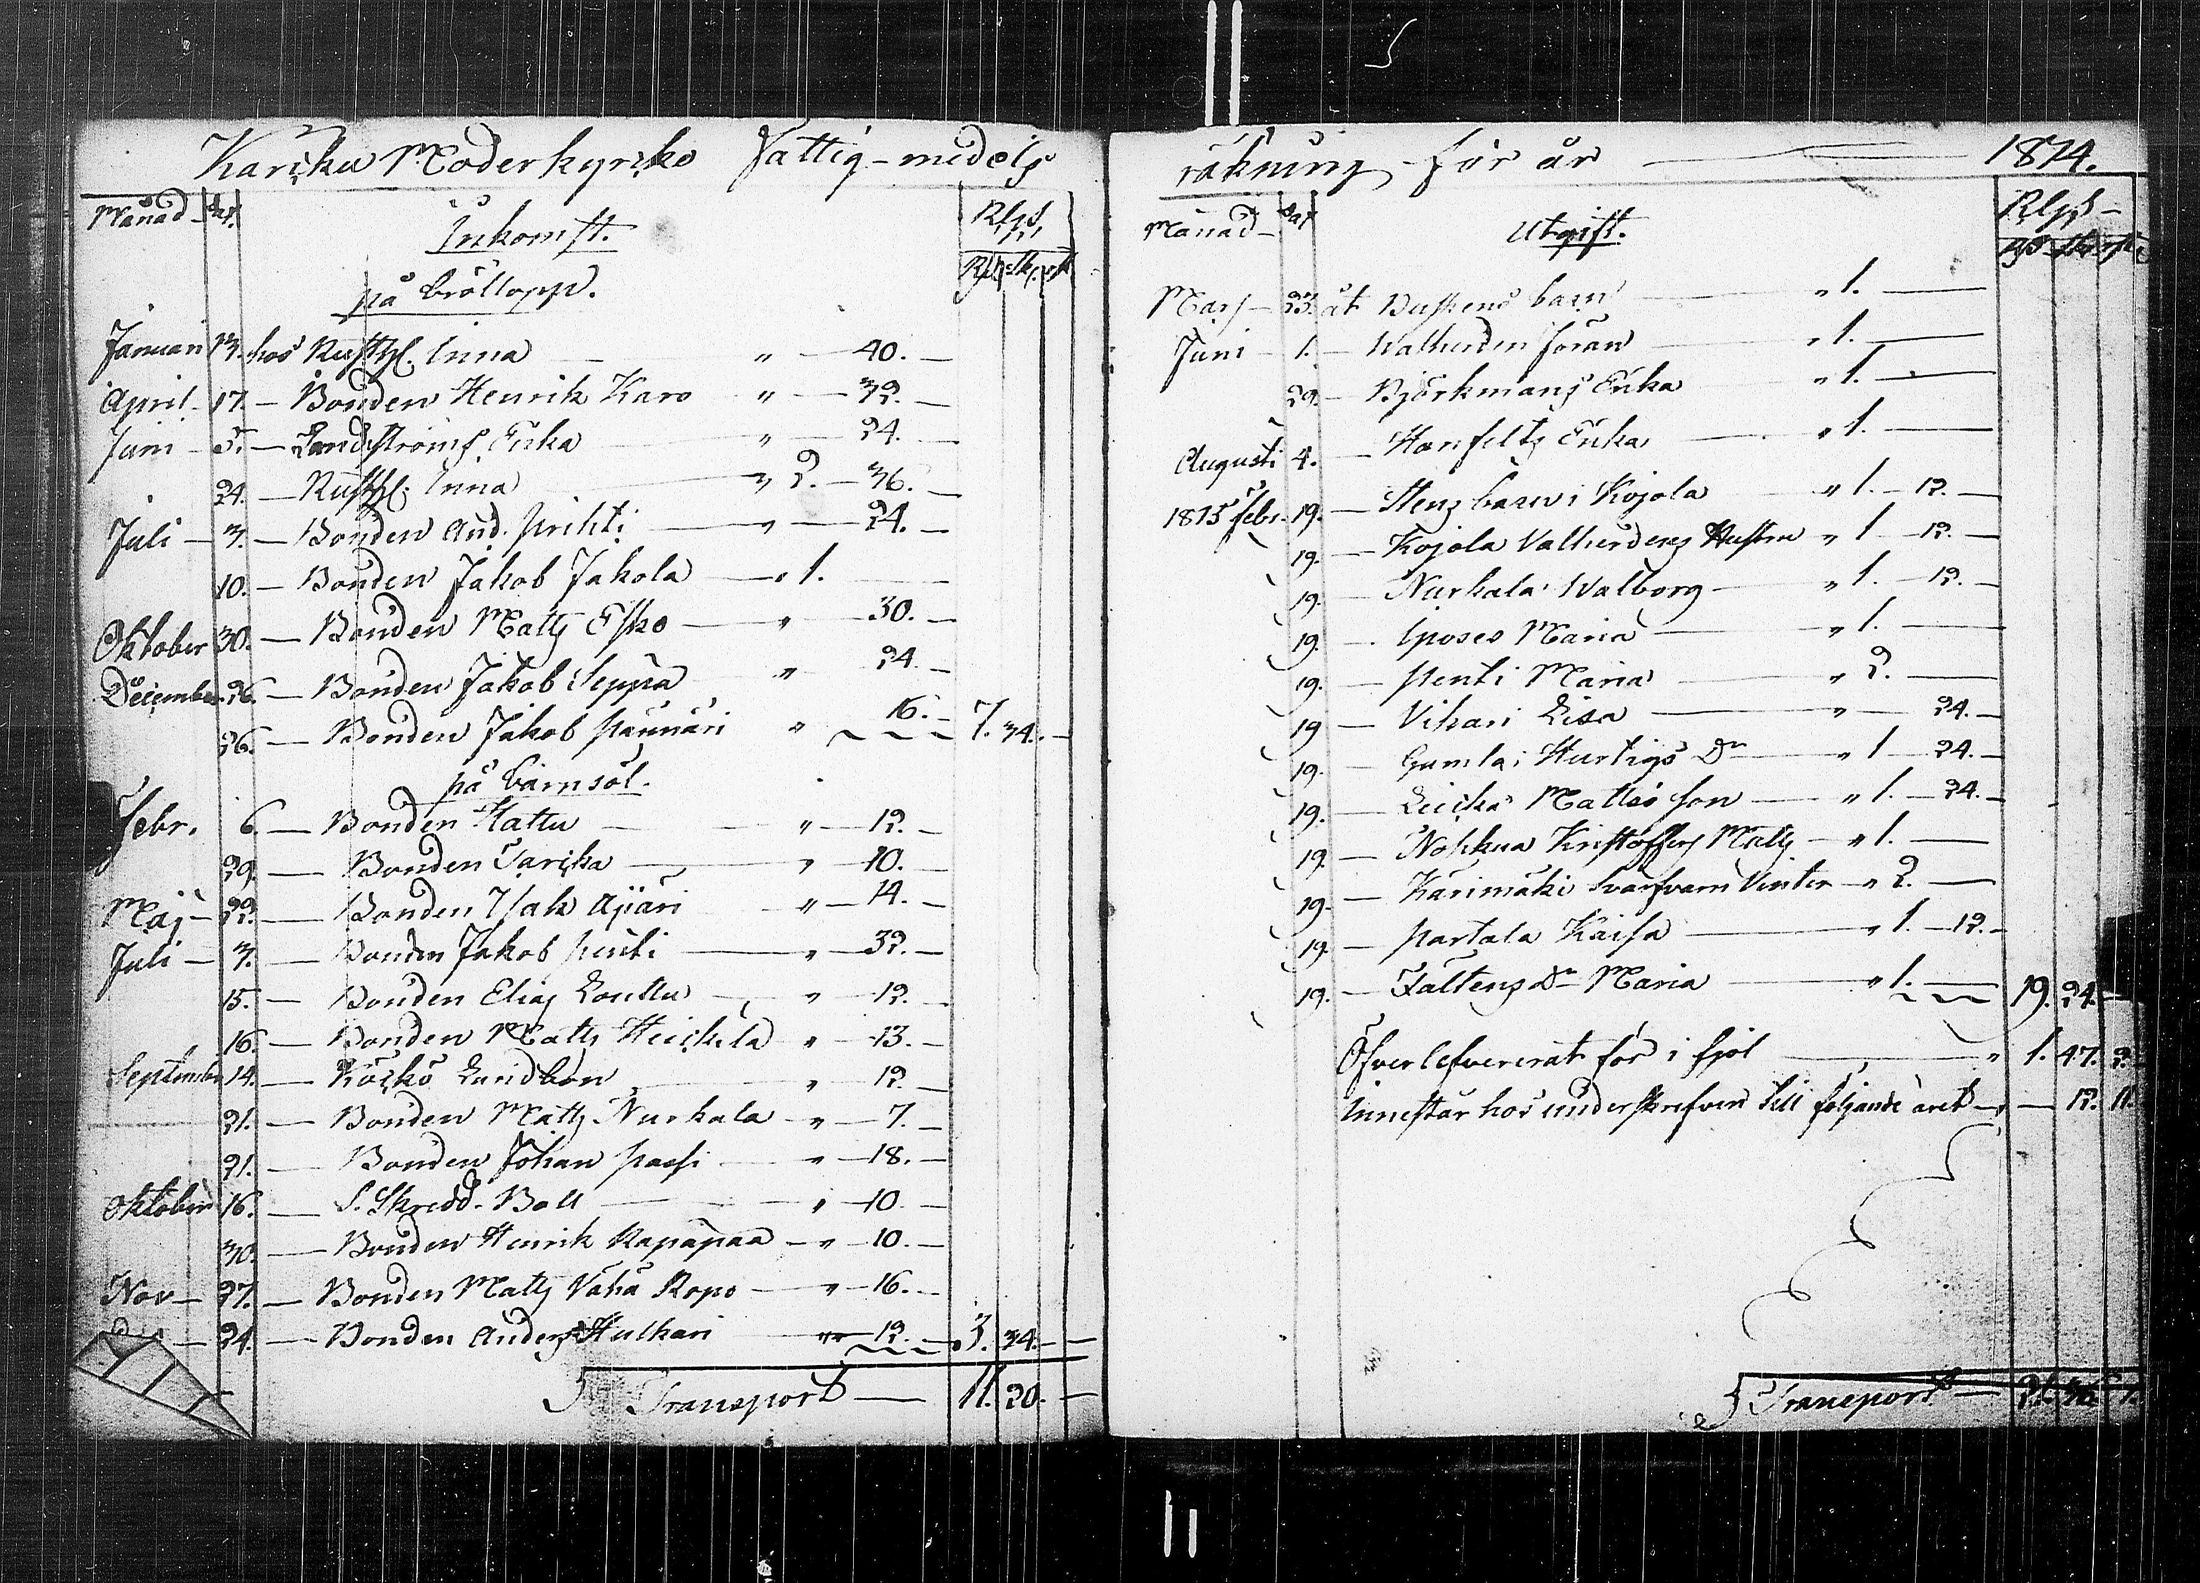 Karcku Moderkyrcko Fattig-medels
Månad dat. Inkomst. Rlgs
på bröllopp.
Januari 13. hos Rusth. Inna " — 40. —
April 17. — Bonden Henrik Karo " — 32. —
Juni 5. — Landströms Enka " — 24. —
24. — Rusth. Inna " 2. — 36. —
Juli 3. — Bonden And. Prihti " — 24. —
10. — Bonden Jakob Jakola " 1. —
Oktober 30. — Bonden Matts Esko " — 30. —
December 26. — Bonden Jakob Seppä " — 24. —
26. — Bonden Jakob Pännäri " 16. — 7. 34. —
på barnsöl.
Febr. 6. — Bonden Hattu " — 12. —
29. — Bonden Tarcka " — 10. —
Maj 22. — Bonden Isak Äijäri " — 14. —
Juli 3. — Bonden Jakob Penti " — 32. —
15. — Bonden Elias Lonttu " — 12. —
16. — Bonden Matts Heickilä " — 13. —
September 14. — Köckö Landbon " 12. —
21. — Bonden Matts Nurkala " — 7. —
21. — Bonden Johan Passi " — 18. —
Oktober 16. — S. Skredd. Boll " — 10. —
30. — Bonden Henrik Rapapaa " — 10. —
Nov — 27. — Bonden Matts Vähä Ropo " — 16. —
24. — Bonden Anders Hulkari " 12. — 3. 34. —
Transport — 11. 20. —
räkning för år 1814.
Månad dat Utgift. Rlgs
Mars 23. åt Buskens barn " 1. —
Juni 1. — Walherden Jöran " 1. —
29. — Björkmans Enka " 1. —
Augusti 4. — Hanfelts Enka " 1. —
1815 Febr. 19. — Stens barn i Kojola " 1. — 12. —
19. — Kojola Valherdens Hustru " 1 — 12. —
19. — Nurkala Walborg " 1. — 12. —
19. — Iposes Maria " 1. —
19. — Penti Maria " 2. —
19 — Vihari Lisa " — 24. —
19. — Gamla Hurtigs Dr " 1 — 24. —
19. — Leicka Matts son " 1. — 24. —
19. — Nohkua Kristoffers Matts " 1. —
19. — Kärimäki Svarfvarn Vinter " 2. —
19. — Partala Kaisa " 1. — 12. —
19. — Fältens Dr Maria " 1. — 19. 24. —
Öfverlefvererat för i fjol " 1. 47. 2.
Innestår hos underskrefven till följande året — 12. 11.
Transport — 21. 36. 1.